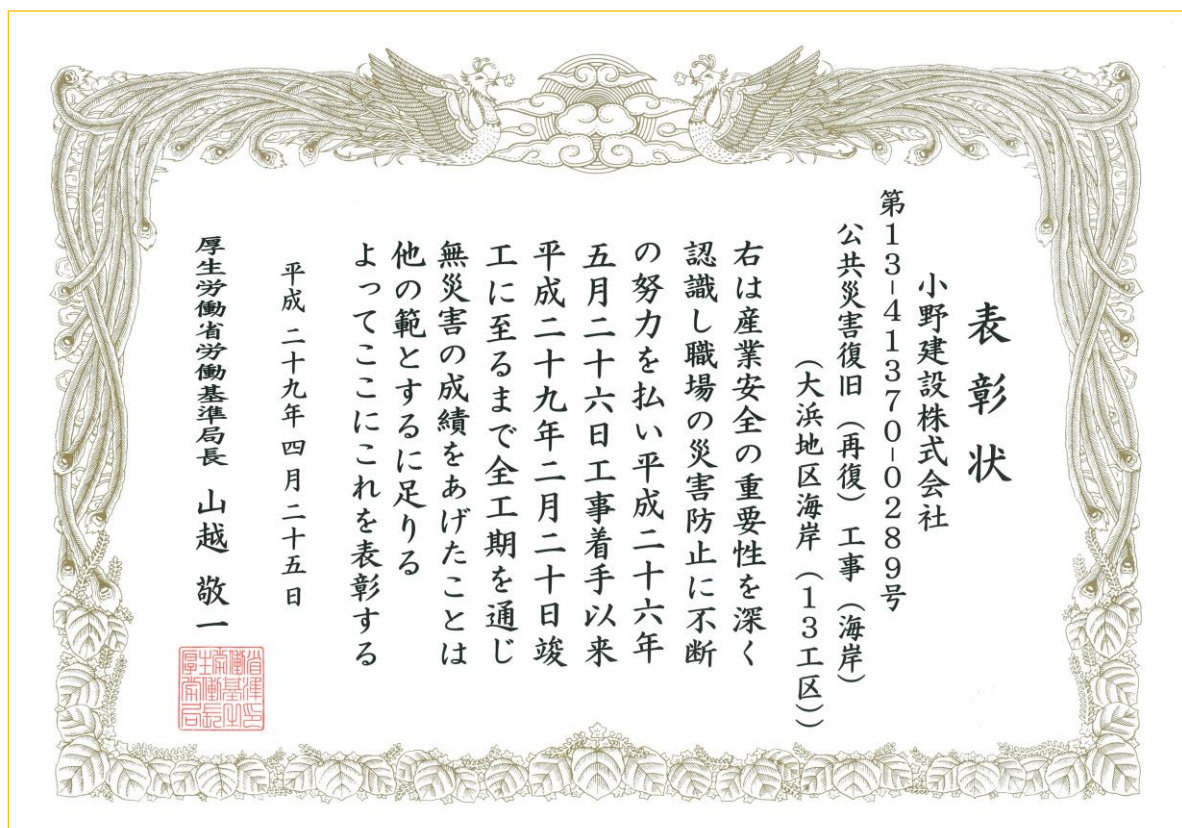 表彰状
小野建設株式会社
第13-41370-0289号
公共災害復旧（再復）工事（海岸）
（大浜地区海岸（13工区））
右は産業安全の重要性を深く
認識し職場の災害防止に不断
の努力を払い平成二十六年
五月二十六日工事着手以来
平成二十九年二月二十日竣
工に至るまで全工期を通じ
無災害の成績をあげたことは
他の範とするに足りる
よってここにこれを表彰する
平成二十九年四月二十五日
厚生労働省労働基準局長 山越 敬一